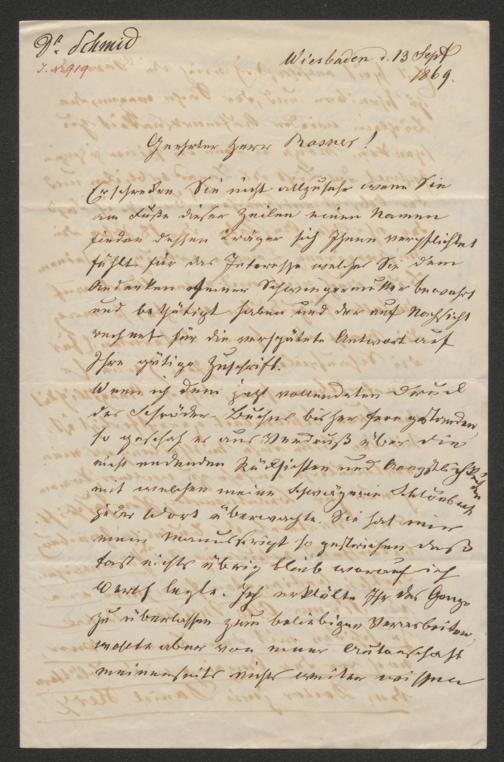 Dr. Schmid
J. No 919
Wiesbaden d. 13 Sept
1869.
Geehrter Herr Rosner!
Erschrecken Sie nicht allzusehr wenn Sie
am Fuße dieser Zeilen einen Namen
finden dessen Träger sich Ihnen verpflichtet
fühlt für das Interesse welches Sie dem
Andenken seiner Schwiegermutter bewahrt
und bethätigt haben und der auf Nachsicht
rechnet für die verspätete Antwort auf
Ihre gütige Zuschrift.
Wenn ich dem jetzt vollendeten Druck
des Schröder Buches bisher fern gestanden
so geschah es aus Verdruß über die
nicht endenden Rücksichten und Aengstlichkeiten
mit welchen meine Schwägerin
jedes Wort überwachte. Sie hat mir
mein Manuscript so gestrichen daß
fast nichts übrig blieb worauf ich
Werth legte. Ich erklärte Ihr das Ganze
zu überlassen zum beliebigen Verarbeiten
wollte aber von einer Autorschaft
meinerseits nichts weiter wissen